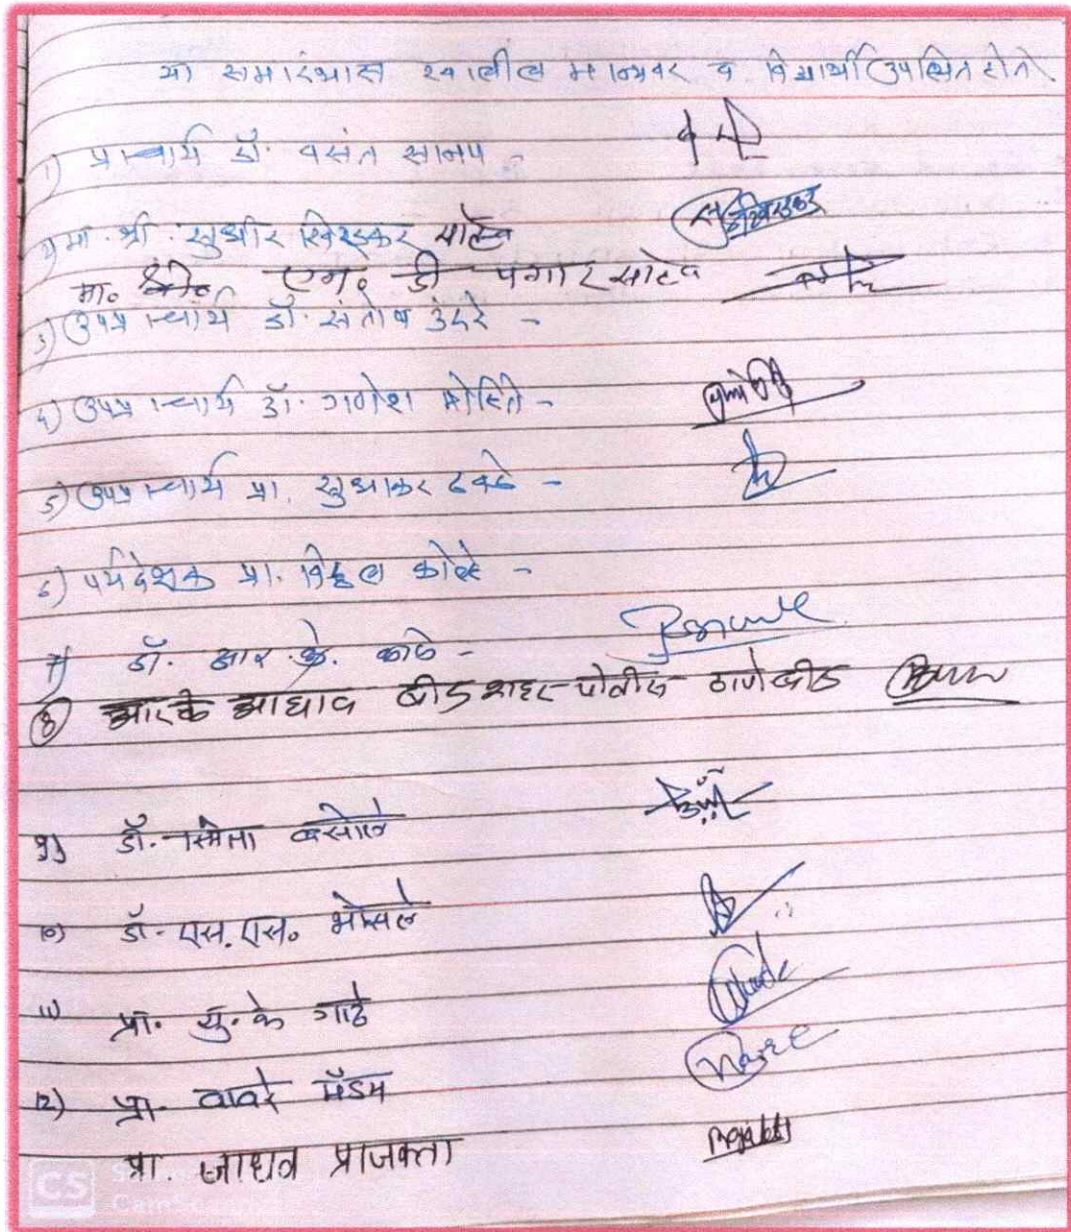 या समारंभास खालील मान्यवर व विद्यार्थी उपस्थित होते.
1) प्राचार्य डॉ. वसंत सानप -
2) मा. श्री. सुधीर खिरडकर साहेब
मा. श्री. एम. डी पगार साहेब
3) उपप्राचार्य डॉ. संतोष उंदरे -
4) उपप्राचार्य डॉ. गणेश मोहिते -
5) उपप्राचार्य प्रा. सुधाकर ढवळे -
6) पर्यवेक्षक प्रा. विठ्ठल कोल्हे -
7) डॉ. आर. के. काळे -
8) आर के आघाव बीड शहर पोलीस ठाणे बीड
9) डॉ. स्मिता
10) डॉ. एस. एस. भोसले
11) प्रा. यु. के गाडे
12) प्रा. वावरे मॅडम
प्रा. जाधव प्राजक्ता
CS